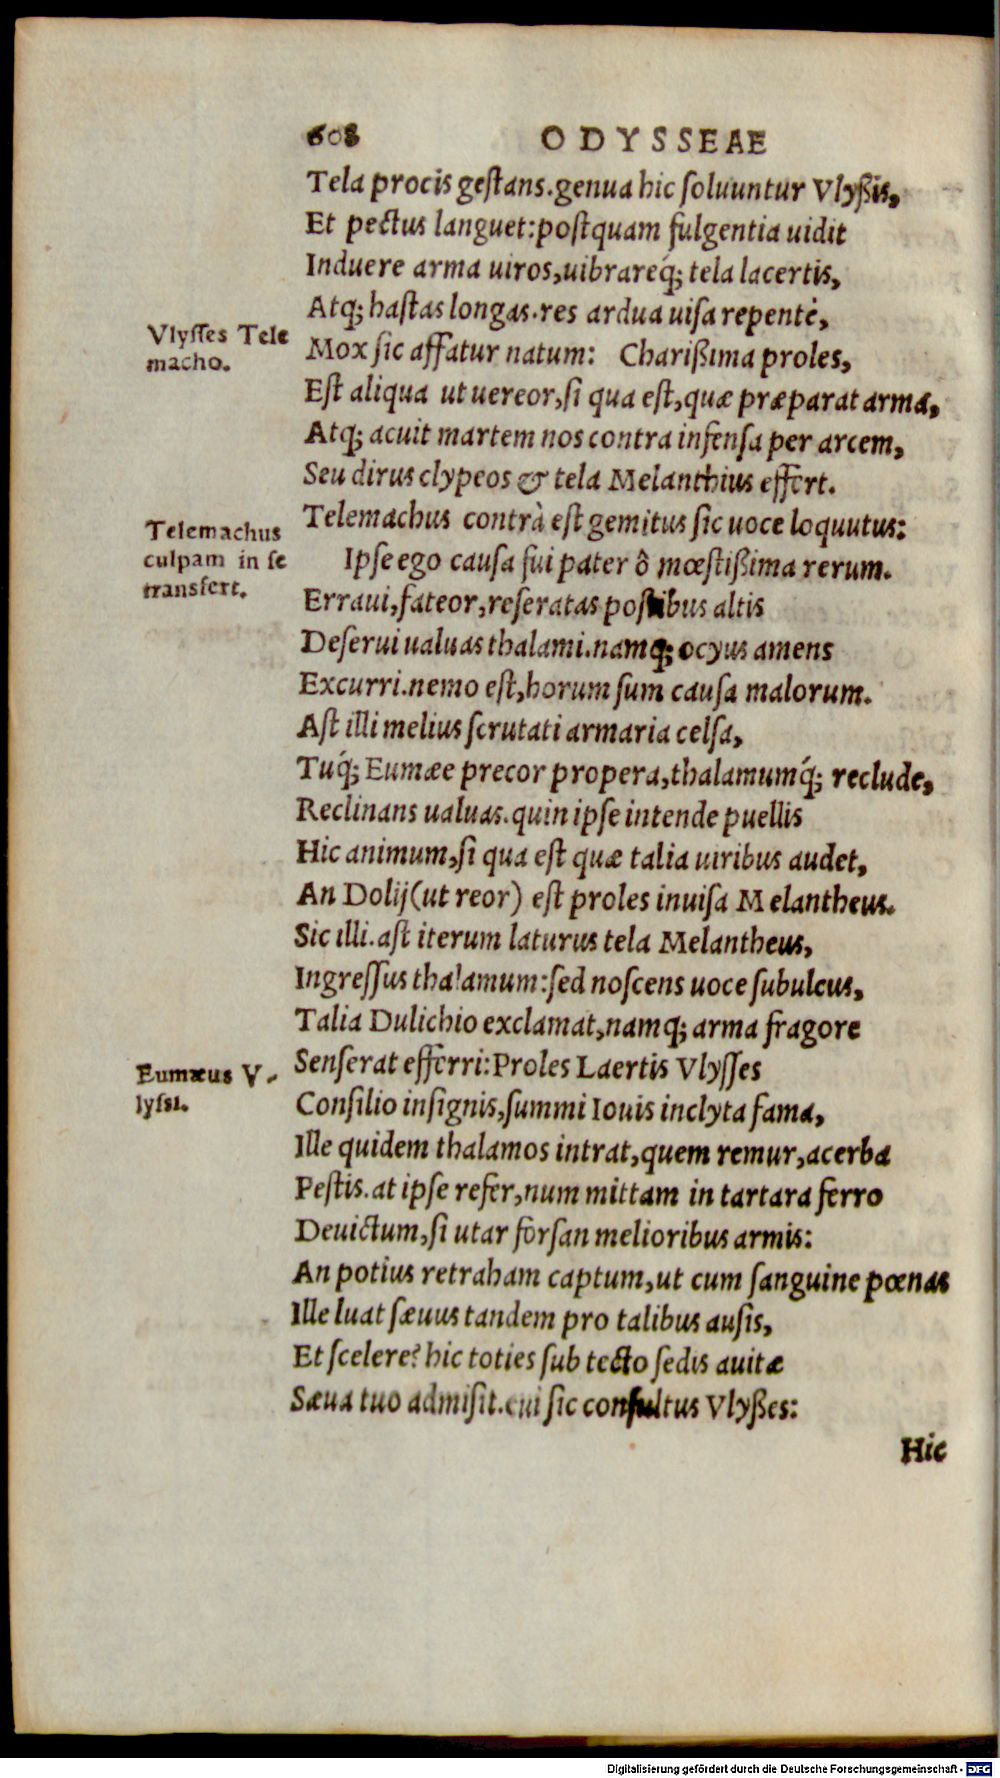 608 ODYSSEAE
Tela procis geſtans.genua hic ſoluuntur Vlyßis,
Et pectus languet:poſtquam fulgentia uidit
Induere arma uiros,uibrareq́; tela lacertis,
Atq; haſtas longas.res ardua uiſa repentè,
Vlyſſes Tele
macho.
Mox ſic affatur natum: Charißima proles,
Eſt aliqua ut uereor,ſi qua eſt,quæ præparat arma,
Atq; acuit martem nos contra infenſa per arcem,
Seu dirus clypeos & tela Melanthius effert.
Telemachus
culpam in ſe
transfert.
Telemachus contrà eſt gemitus ſic uoce loquutus:
Ipſe ego cauſa fui pater ô mœſtißima rerum.
Erraui,fateor,reſeratas poſtibus altis
Deſerui ualuas thalami.namq; ocyus amens
Excurri.nemo eſt,horum ſum cauſa malorum.
Aſt illi melius ſcrutati armaria celſa,
Tuq́; Eumæe precor propera,thalamumq́; reclude,
Reclinans ualuas.quin ipſe intende puellis
Hic animum,ſi qua eſt quæ talia uiribus audet,
An Dolij(ut reor) eſt proles inuiſa Melantheus.
Sic illi.aſt iterum laturus tela Melantheus,
Ingreſſus thalamum:ſed noſcens uoce ſubulcus,
Talia Dulichio exclamat,namq; arma fragore
Eumæus V-
lyſsi.
Senſerat efferri:Proles Laertis Vlyſſes
Conſilio inſignis,ſummi Iouis inclyta fama,
Ille quidem thalamos intrat,quem remur,acerba
Peſtis.at ipſe refer,num mittam in tartara ferro
Deuictum,ſi utar forſan melioribus armis:
An potius retraham captum,ut cum ſanguine pœnas
Ille luat ſæuus tandem pro talibus auſis,
Et ſcelere? hic toties ſub tecto ſedis auitæ
Sæua tuo admiſit.cui ſic conſultus Vlyßes:
Hic
Digitalisierung gefördert durch die Deutsche Forschungsgemeinschaft - DFG